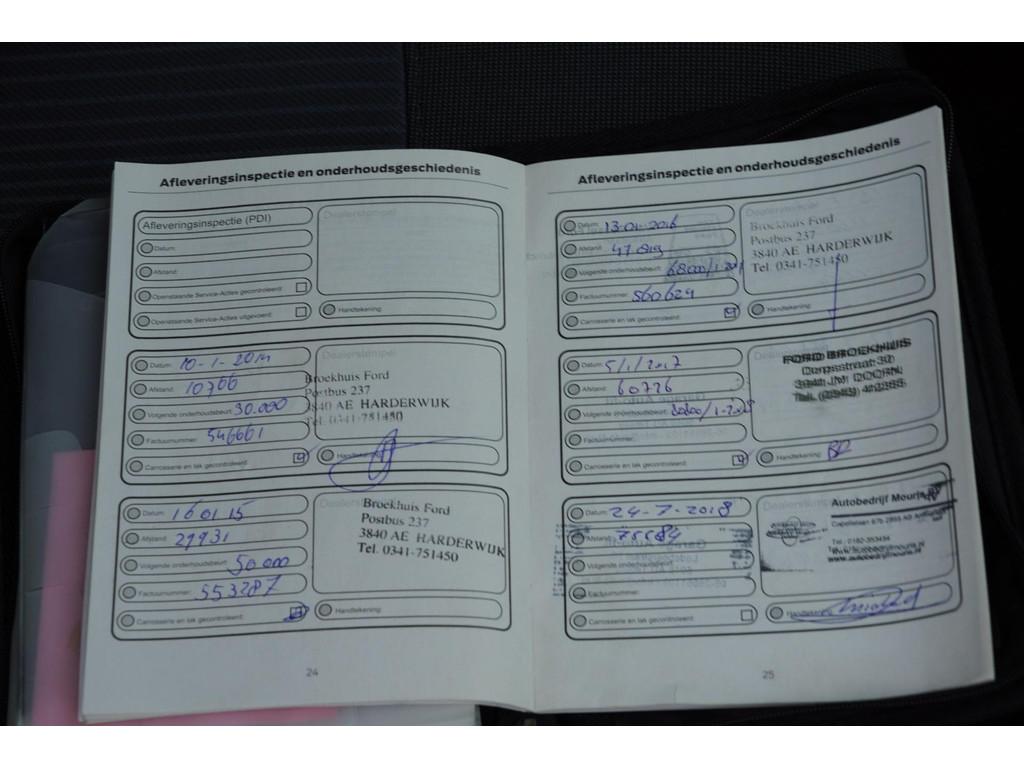 Afleveringsinspectie en onderhoudsgeschiedenis
Afleveringsinspectie (PDI)
Dealerstempel
Datum:
Afstand:
Openstaande Service-Acties gecontroleerd:
Openstaande Service-Acties uitgevoerd:
Handtekening:
Datum: 10-1-2014
Afstand: 10766
Volgende onderhoudsbeurt: 30.000
Factuurnummer: 546661
Carrosserie en lak gecontroleerd:
Dealerstempel
Broekhuis Ford
Postbus 237
3840 AE HARDERWIJK
Tel. 0341-751450
Handtekening:
Datum: 16 01 15
Afstand: 29931
Volgende onderhoudsbeurt: 50.000
Factuurnummer: 553287
Carrosserie en lak gecontroleerd:
Broekhuis Ford
Postbus 237
3840 AE HARDERWIJK
Tel. 0341-751450
Handtekening:
24
Afleveringsinspectie en onderhoudsgeschiedenis
Datum: 13-01-2016
Afstand:
Volgende onderhoudsbeurt:
Factuurnummer: 560629
Carrosserie en lak gecontroleerd:
Dealerstempel
Broekhuis Ford
Postbus 237
3840 AE HARDERWIJK
Tel. 0341-751450
Handtekening:
Datum: 5/1/2017
Afstand: 60726
Volgende onderhoudsbeurt:
Factuurnummer:
Carrosserie en lak gecontroleerd:
FORD BROEKHUIS
Dorpsstraat
DOORN
Handtekening:
Datum: 24-7-2018
Afstand: 75584
Volgende onderhoudsbeurt:
Factuurnummer:
Carrosserie en lak gecontroleerd:
Autobedrijf Mourik
Tel.: 0182-353434
www.autobedrijfmourik.nl
Handtekening:
25